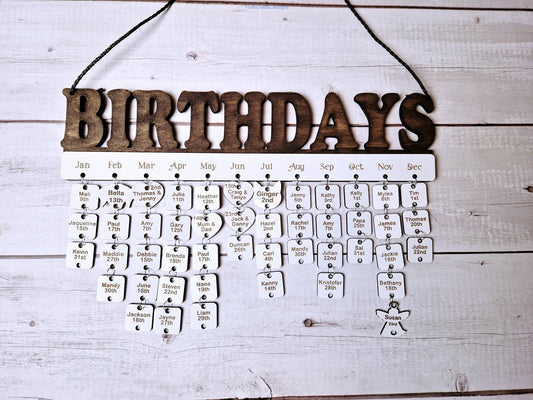 BIRTHDAYS
Jan Feb Mar Apr May Jun Jul Aug Sep Oct Nov Dec
Mali
9th
Jaqueline
15th
Kevin
31st
Bella
13th
Paul
17th
Maddie
27th
Mandy
30th
2nd
Thomas &
Jenny
Amy
7th
Debbie
15th
June
16th
Jackson
18th
Julia
11th
Gary
12th
Brenda
18th
Steven
22nd
Jayne
27th
Heather
12th
Mum &
Dad
Paul
17th
Nana
19th
Liam
29th
15th
Craig &
Tanya
23rd
Jack &
Daisy
Duncan
26th
Ginger
2nd
Hazel
2nd
Carl
4th
Kenny
14th
Jenny
5th
Rachel
17th
Mandy
30th
Kathy
3rd
Amy
7th
Julian
22nd
Kristofer
28th
Kelly
1st
Papa
25th
Sal
31st
Myles
6th
James
7th
Jackie
16th
Bethany
18th
Susan
23rd
Tim
1st
Thomas
20th
Julian
22nd